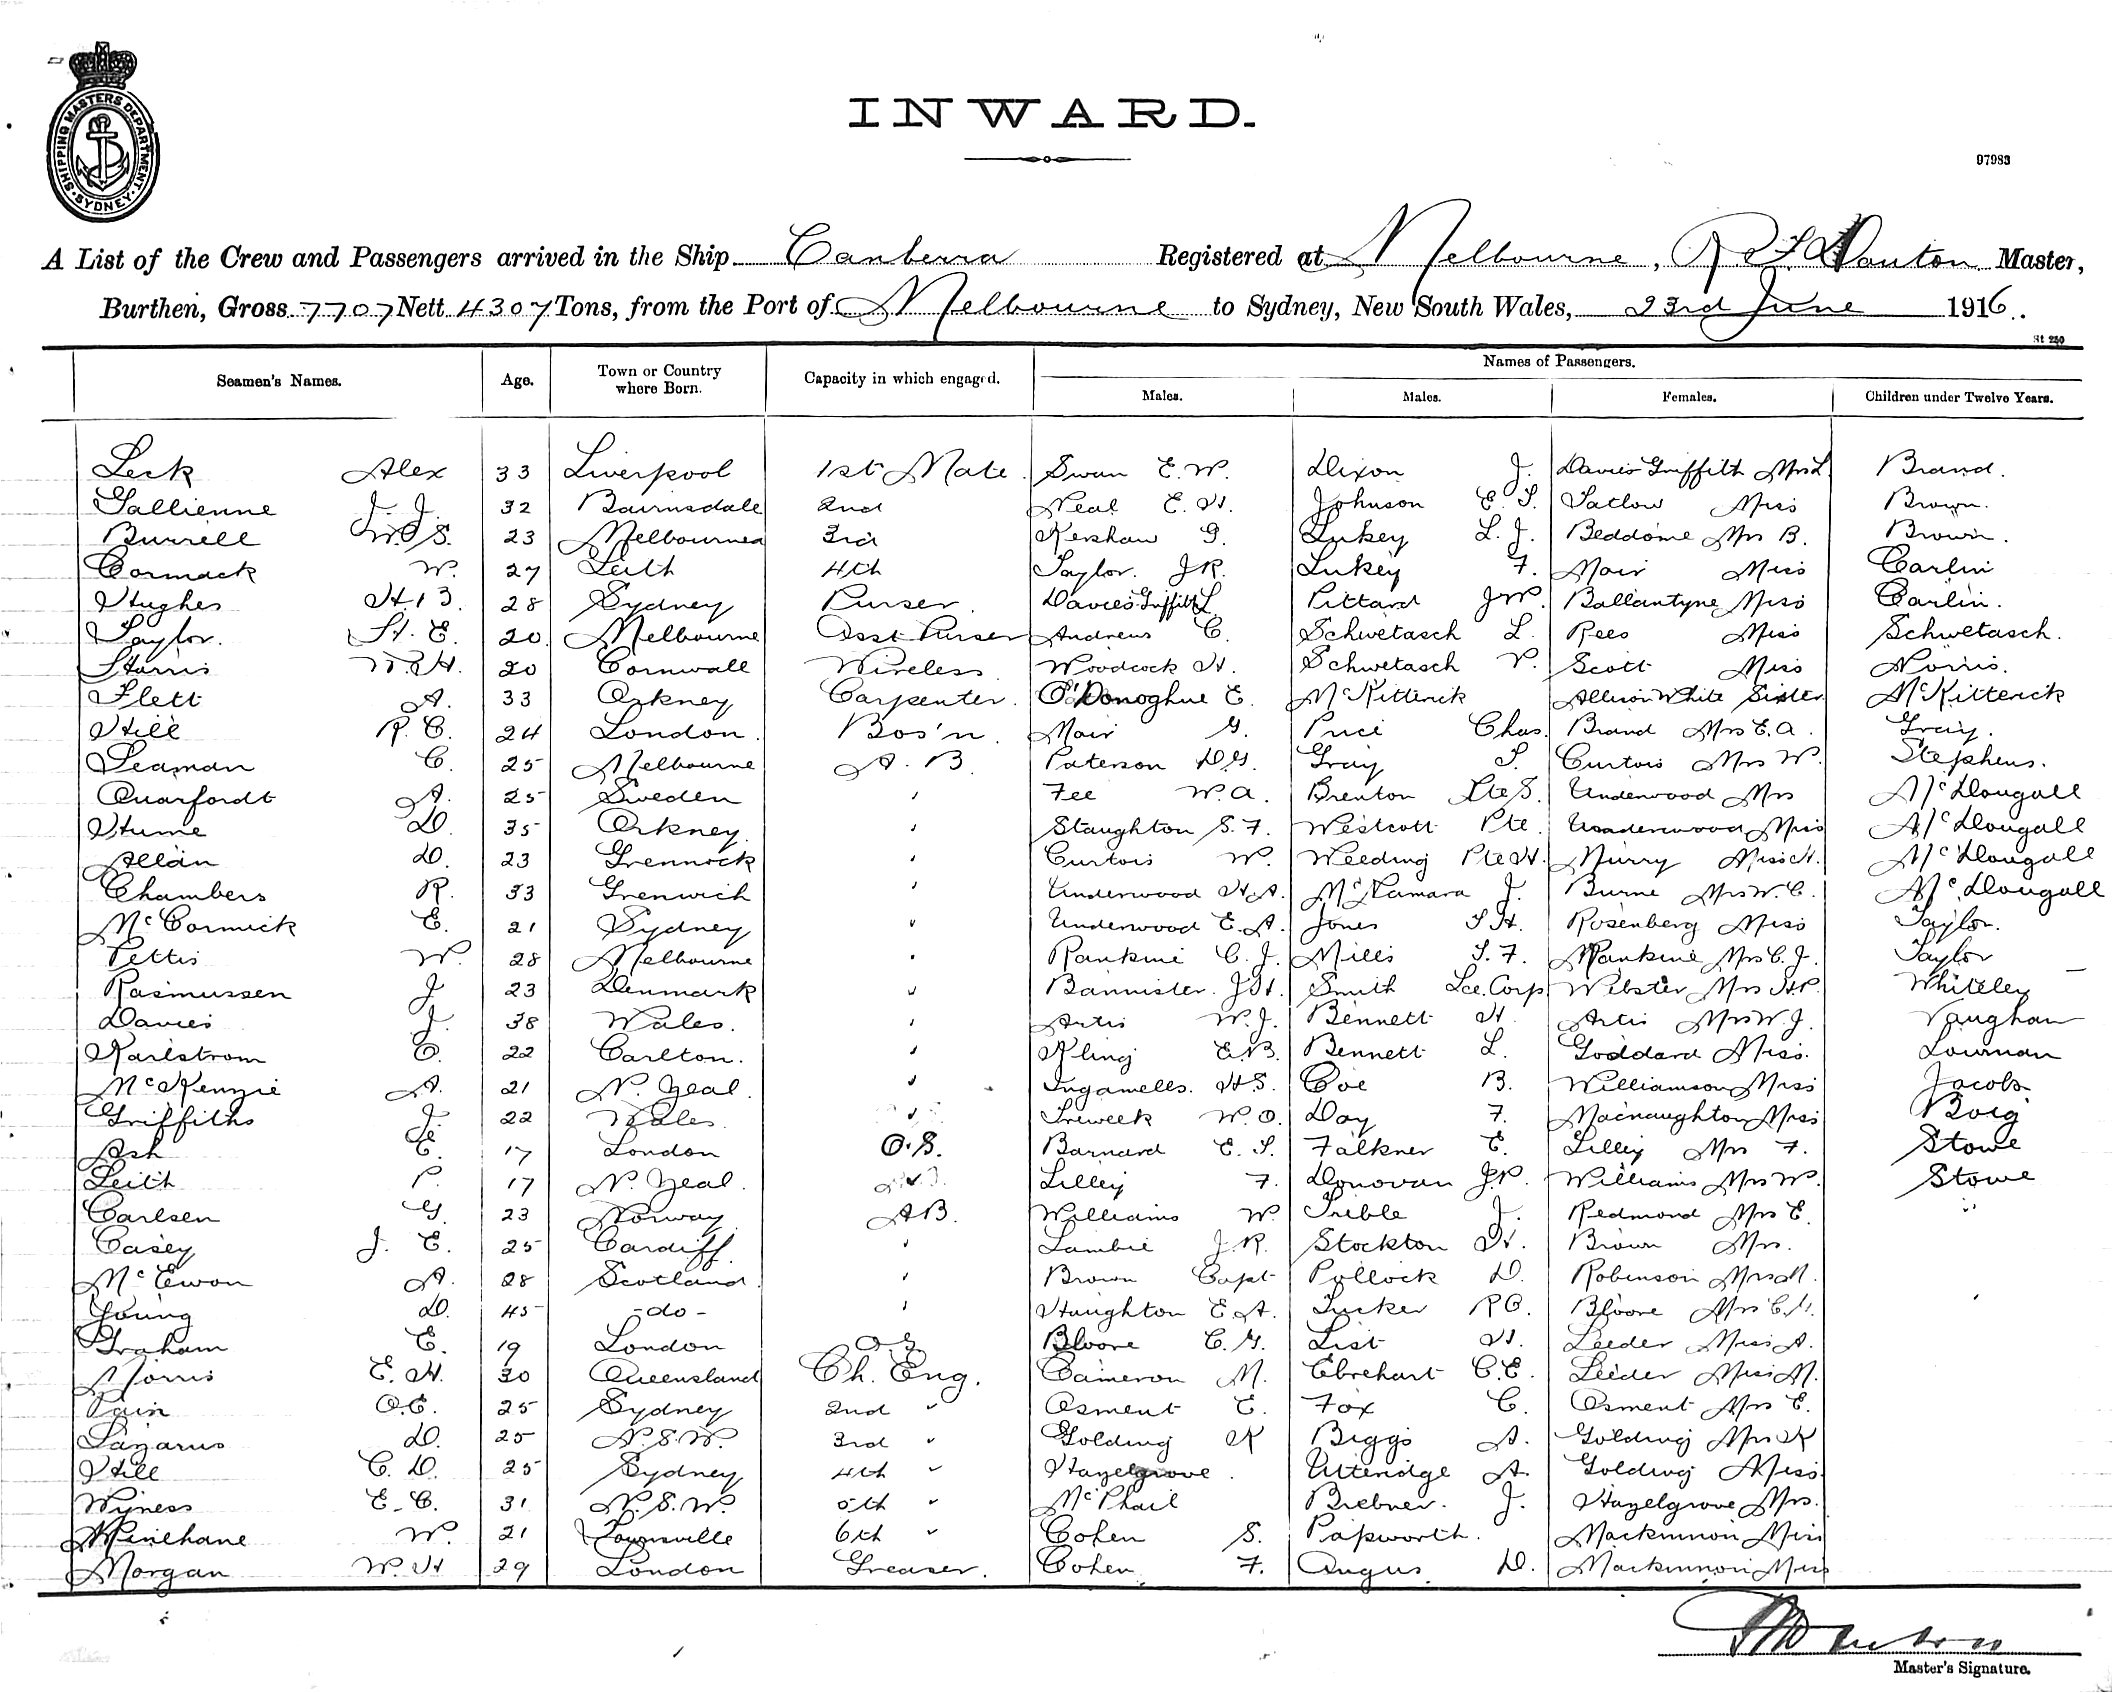 SHIPPING MASTERS DEPARTMENT. SYDNEY
INWARD.
97983
A List of the Crew and Passengers arrived in the Ship Canberra Registered at Melbourne, Master,
Burthen, Gross 7707 Nett 4307 Tons, from the Port of Melbourne to Sydney, New South Wales, 23rd June 1916.
St 250
Names of Passengers.
Seamen's Names. Age. Town or Country where Born. Capacity in which engaged. Males. Males. Females. Children under Twelve Years.
Leck Alex 33 Liverpool 1st Mate Swan E. W. Dixon J. Davies Griffith Mrs L. Brand.
Gallienne J. J. 32 Bairnsdale 2nd Neal E. H. Johnson E. S. Satlow Miss Brown.
Burrell 23 Melbourne 3rd Kershaw G. Lukey L. J. Beddome Mrs B. Brown.
Cormack W. 27 Leith 4th Taylor. J R. Lukey F. Mair Miss Carlin
Hughes H. B. 28 Sydney Purser. Davies Griffith L. Pittard J W. Ballantyne Miss Carlin.
Taylor. St. E. 20 Melbourne Asst Purser Andrews C. Schwetasch L. Rees Miss Schwetasch.
Harris W. H. 20 Cornwall Wireless Woodcock H. Schwetasch V. Scott Miss Norris.
Flett A. 33 Orkney Carpenter. O'Donoghue E. McKitterick Allison White Sister McKitterick
Hill R. C. 24 London. Bos'n. Mair G. Price Chas. Brand Mrs E. A. Gray.
Seaman C. 25 Melbourne A. B. Paterson D. G. Gray S. Curtois Mrs W. Stephens.
Quarfordt A. 25 Sweden " Fee W. A. Brenton Pte S. Underwood Mrs McDougall
Hume D. 35 Orkney. " Staughton S. F. Westcott Pte. Underwood Miss McDougall
Allan D. 23 Grennock " Curtois W. Weeding Pte H. Murry Miss H. McDougall
Chambers R. 33 Grenwich " Underwood H. A. McNamara J. Burne Mrs W. C. McDougall
McCormick E. 21 Sydney " Underwood E. A. Jones S H. Rosenberg Miss Taylor.
Pettis W. 28 Melbourne " Rankine C. J. Mills S. F. Rankine Mrs C. J. Taylor
Rasmussen J. 23 Denmark " Bannister. J H. Smith Lce. Corp Webster Mrs H. P. Whiteley
Davies J. 38 Wales. " Artis W. J. Bennett H. Artis Mrs W. J. Vaughan
Karlstrom E. 22 Carlton. " Kling E. B. Bennett L. Goddard Miss. Lowman
McKenzie A. 21 N. Zeal. " Ingamells. H S. Coe B. Williamson Miss Jacobs
Griffiths J. 22 Wales. " Treweek W. O. Day F. Macnaughton Miss Boig
Ash E. 17 London O. S. Barnard E. S. Falkner E. Lilley Mrs F. Stowe
Leith P. 17 N. Zeal. Lilley F. Donovan J. P. Williams Mrs W. Stowe
Carlsen G. 23 Norway A B. Williams W. Trible J. Redmond Mrs E.
Casey J. E. 25 Cardiff. " Lambie J. R. Stockton H. Brown Mrs.
McEwon A. 28 Scotland. " Brown Capt Pollock D. Robinson Mrs M.
Young D. 45 -do- " Haughton E. A. Tucker R C. Bloore Mrs C. G.
Graham E. 19 London O S Bloore C. G. List H. Leeder Miss A.
Norris E. H. 30 Queensland Ch. Eng. Cameron M. Ebrehart C. E. Leeder Miss M.
Pain O. C. 25 Sydney 2nd " Osment E. Fox C. Osment Mrs E.
Lazarus D. 25 N. S. W. 3rd " Golding K Biggs A. Golding Mrs K
Hill C. D. 25 Sydney 4th " Hazelgrove. Utteridge A. Golding Miss
Wyness E. C. 31 N. S. W. 5th " McPhail Brebner. J. Hazelgrove Mrs.
Minehane W. 21 Townsville 6th " Cohen S. Papworth. Mackinnon Miss
Morgan W. H 29 London Greaser. Cohen F. Angus D. Mackinnon Miss
Master's Signature.